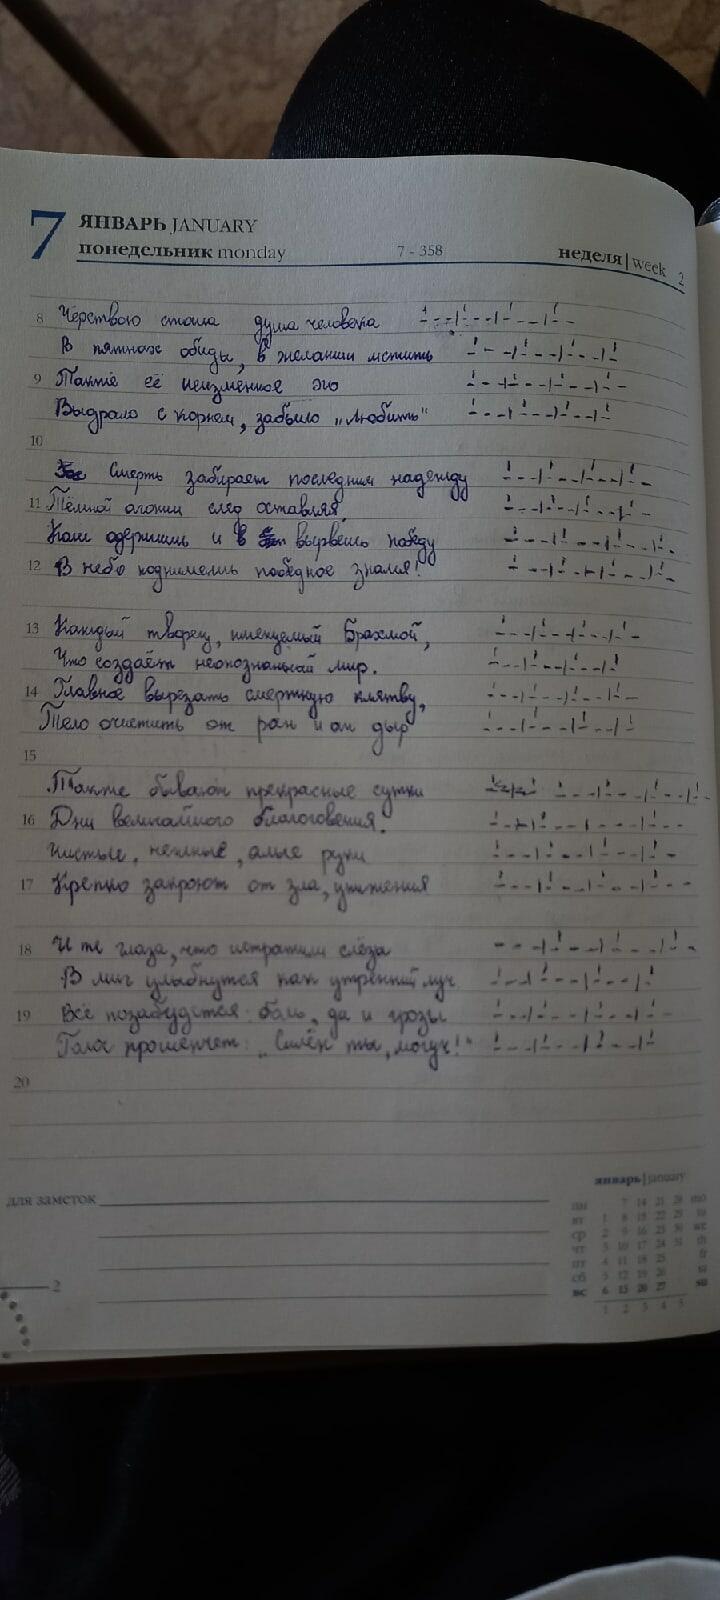 7 ЯНВАРЬ JANUARY
понедельник monday 7 - 358 неделя | week 2
8 Чёрствою стала душа человека
В пятнах обиды, в желании мстить
9 Также её неизменное эго
Выдрало с корнем, забыло "любить"
10
Смерть забирает последним надежду
11 Тёмной след оставляя.
одержишь и вырвешь победу
12 В небо поднимешь победное знамя!
13 Каждый творец, именуемый Брахмой,
Что создаёт неопознанный мир.
14 Главное вырезать смертную клятву,
Тело очистить от ран и от дыр
15
Также бывают прекрасные сутки
16 Дни величайшего благоговения.
Чистые, нежные, алые руки
17 Крепко закроют от зла, унижения
18 И те глаза, что истратили слёзы
В миг улыбнутся как утренний луч.
19 Всё позабудется: боль, да и грозы
Голос прошепчет: "Силён ты, могуч!"
20
для заметок
2
январь | january
пн 7 14 21 28
вт 1 8 15 22 29
ср 2 9 16 23 30
чт 3 10 17 24 31
пт 4 11 18 25
сб 5 12 19 26
вс 6 13 20 27
1 2 3 4 5